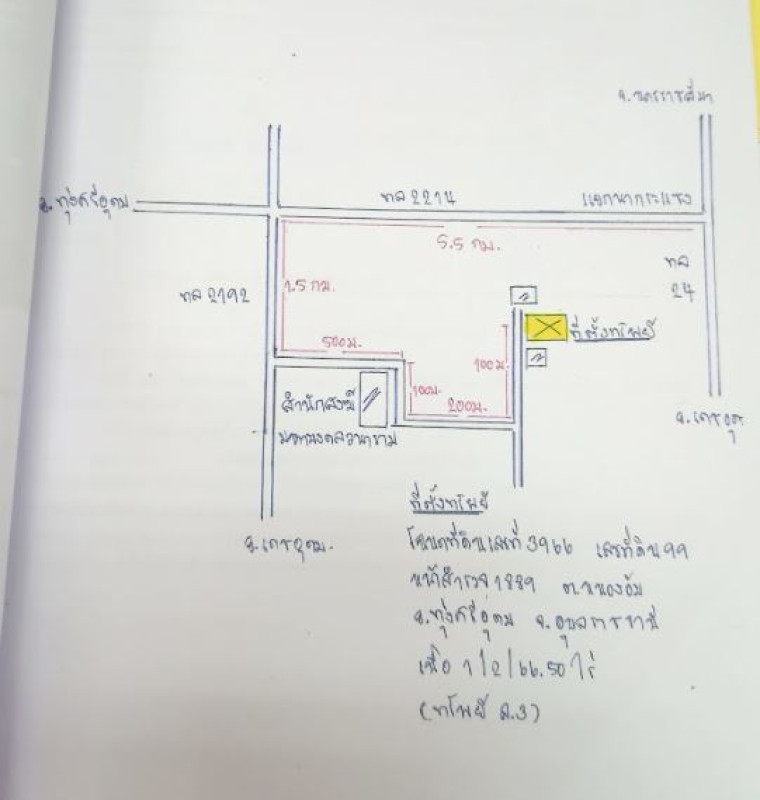 จ.นครราชสีมา
อ.ทุ่งศรีอุดม
ทล 2214
แยกนากระแซง
5.5 กม.
ทล
24
ทล 2192
1.5 กม.
500ม.
100ม.
ที่ตั้งทรัพย์
100ม.
200ม.
สำนักสงฆ์
อ.เดชอุดม.
ที่ตั้งทรัพย์
โฉนดที่ดินเลขที่ 3966 เลขที่ดิน 99
หน้าสำรวจ 1889 ต.หนองอ้ม
อ.ทุ่งศรีอุดม จ.อุบลราชธานี
เนื้อ 1/2/66.50 ไร่
(ทรัพย์ ล.3)